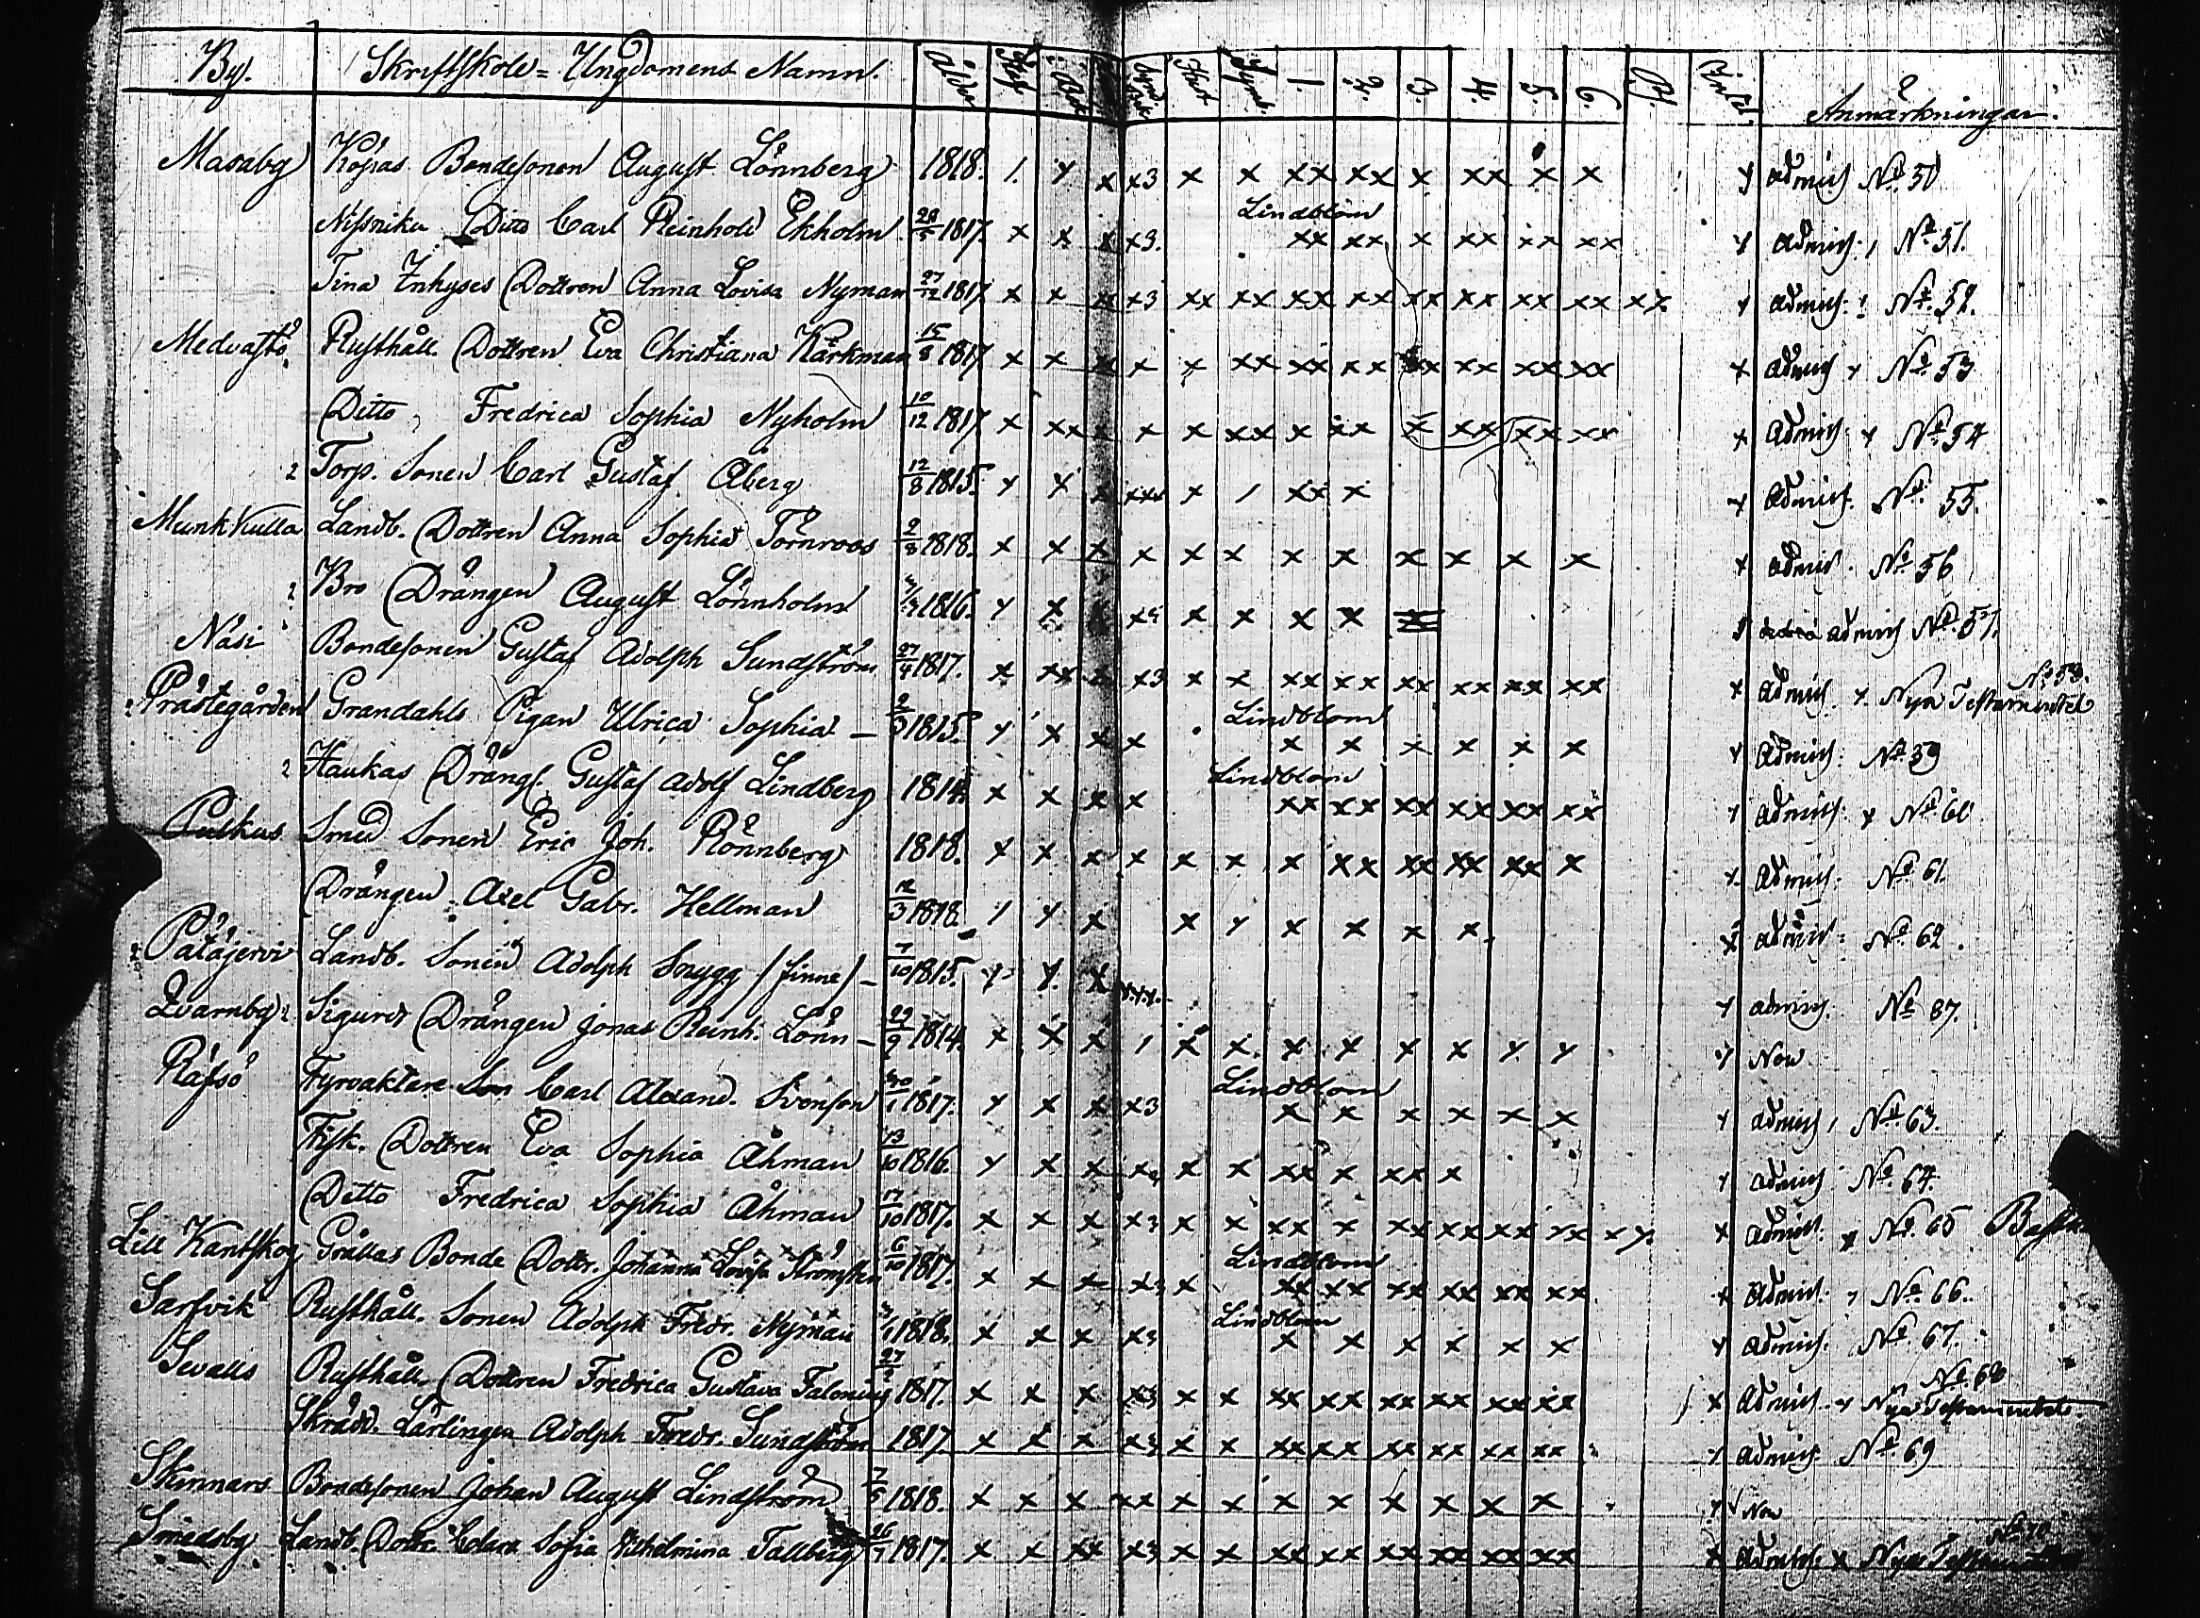 By. Skriftskole= Ungdomens Namn. Ålder 1. 2. 3. 4. 5. 6. Anmärkningar.
Masaby Bondesonen August Lönnberg 1818. 1. y x x3 x x xx xx x xx x x y admitt. No 50
Lindblom
Nissniku Ditto Carl Reinhold Ekholm 28/5 1817. x x x x3. xx xx x xx xx xx y admitt. No 51.
Tina Inhyses Dottren Anna Lovisa Nyman 27/12 1817 x x x x3 xx xx xx xx xx xx xx xx xx. y admitt. No 52.
Medvastö. Rusthåll. Dottren Eva Christiana Kärkman 15/8 1817 x x x x x xx xx xx xx xx xx xx x admitt x No 53
Ditto Fredrica Sophia Nyholm 10/12 1817 x xx x x x xx x xx x xx xx xx x admitt. x No 54
2 Torp. Sonen Carl Gustaf Åberg 12/8 1815. y y x xxx x / xx x y admitt. No 55.
Munkkulla Landb. Dottren Anna Sophia Törnroos 9/8 1818. x x x x x x x x x x x x x admitt. No 56
2 Bro Drängen August Lönnholm 1816. y x x x x x x x admitt No 57.
Näsi Bondesonen Gustaf Adolph Sundström 27/4 1817. x xx x x3 x x xx xx xx xx xx xx x admitt. x. Nya Testamentet No 58.
Lindblom
2 Prästegården Grandahls Pigan Ulrica Sophia — 2/3 1815. y x x x x x x x x x y admitt: No 59
Lindblom
2 Haukas Drängs. Gustaf Adolf Lindberg 1814. x x x x xx xx xx xx xx xx y admitt. x No 60
Smed Sonen Eric Joh. Rönnberg 1818. x x x x x x x xx xx xx xx x x admitt: No 61.
Drängen Axel Gabr. Hellman 12/3 1818. y y x x y x x x x. x admitt: No 62.
2 Påtäjervi Landb. Sonen Adolph Snygg /finne/ — 7/10 1815. y y. x y.y.y. y admitt. No 87.
Qvarnby 2 Sigurds Drängen Jonas Reinh. Lönn — 29/9 1814. x x x / x x. x x x x y y y Non
Lindblom
Räfsö Fyrvaktare Son Carl Alexand. Svenson 1817. y x x x3 x x x x x x y admitt, No 63.
Fisk. Dottren Eva Sophia Åhman 13/10 1816. y x x x x xx x xx x y admitt No 64.
Ditto Fredrica Sophia Åhman 17/10 1817. x x x x3 x x xx x xx xx xx xx xy. x admitt. x No 65
Lindblom
Lill Kantskog Grällas Bonde Dottr. Johanna Lovisa 6/10 1817. x x x x3 x xx xx xx xx xx xx x admitt. No 66.
Lindblom
Sarfvik Rusthåll. Sonen Adolph Fredr. Nyman 1818. x x x x3 x x x x x x y admitt. No 67.
Sewalls Rusthåll. Dottren Fredrica Gustava Falenius 27/2 1817. x x x x3 x x xx xx xx xx xx xx x admitt. x Nya Testamentet. No 68
Skrädd. Lärlingen Adolph Fredr. Sundström 1817. x x x x3 x x xx xx xx xx xx xx y admitt. No 69
Skinnars Bondesonen Johan August Lindström 7/5 1818. x x x xx x x x x x x x x y Non
Smedsby Landb. Dottr. Clara Sofia Wilhelmina Tallberg 26/7 1817. x x xx x3 x x xx xx xx xx xx xx x admitt. x Nya No 70